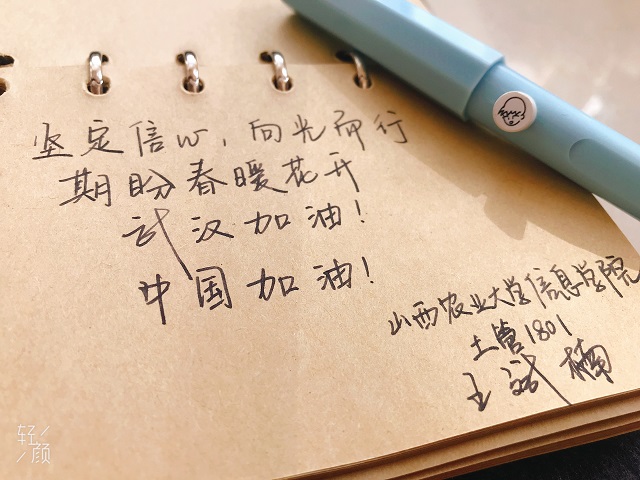 坚定信心,向光而行
期盼春暖花开
武汉加油!
中国加油!
山西农业大学信息学院
土管1801
王斌楠
轻颜